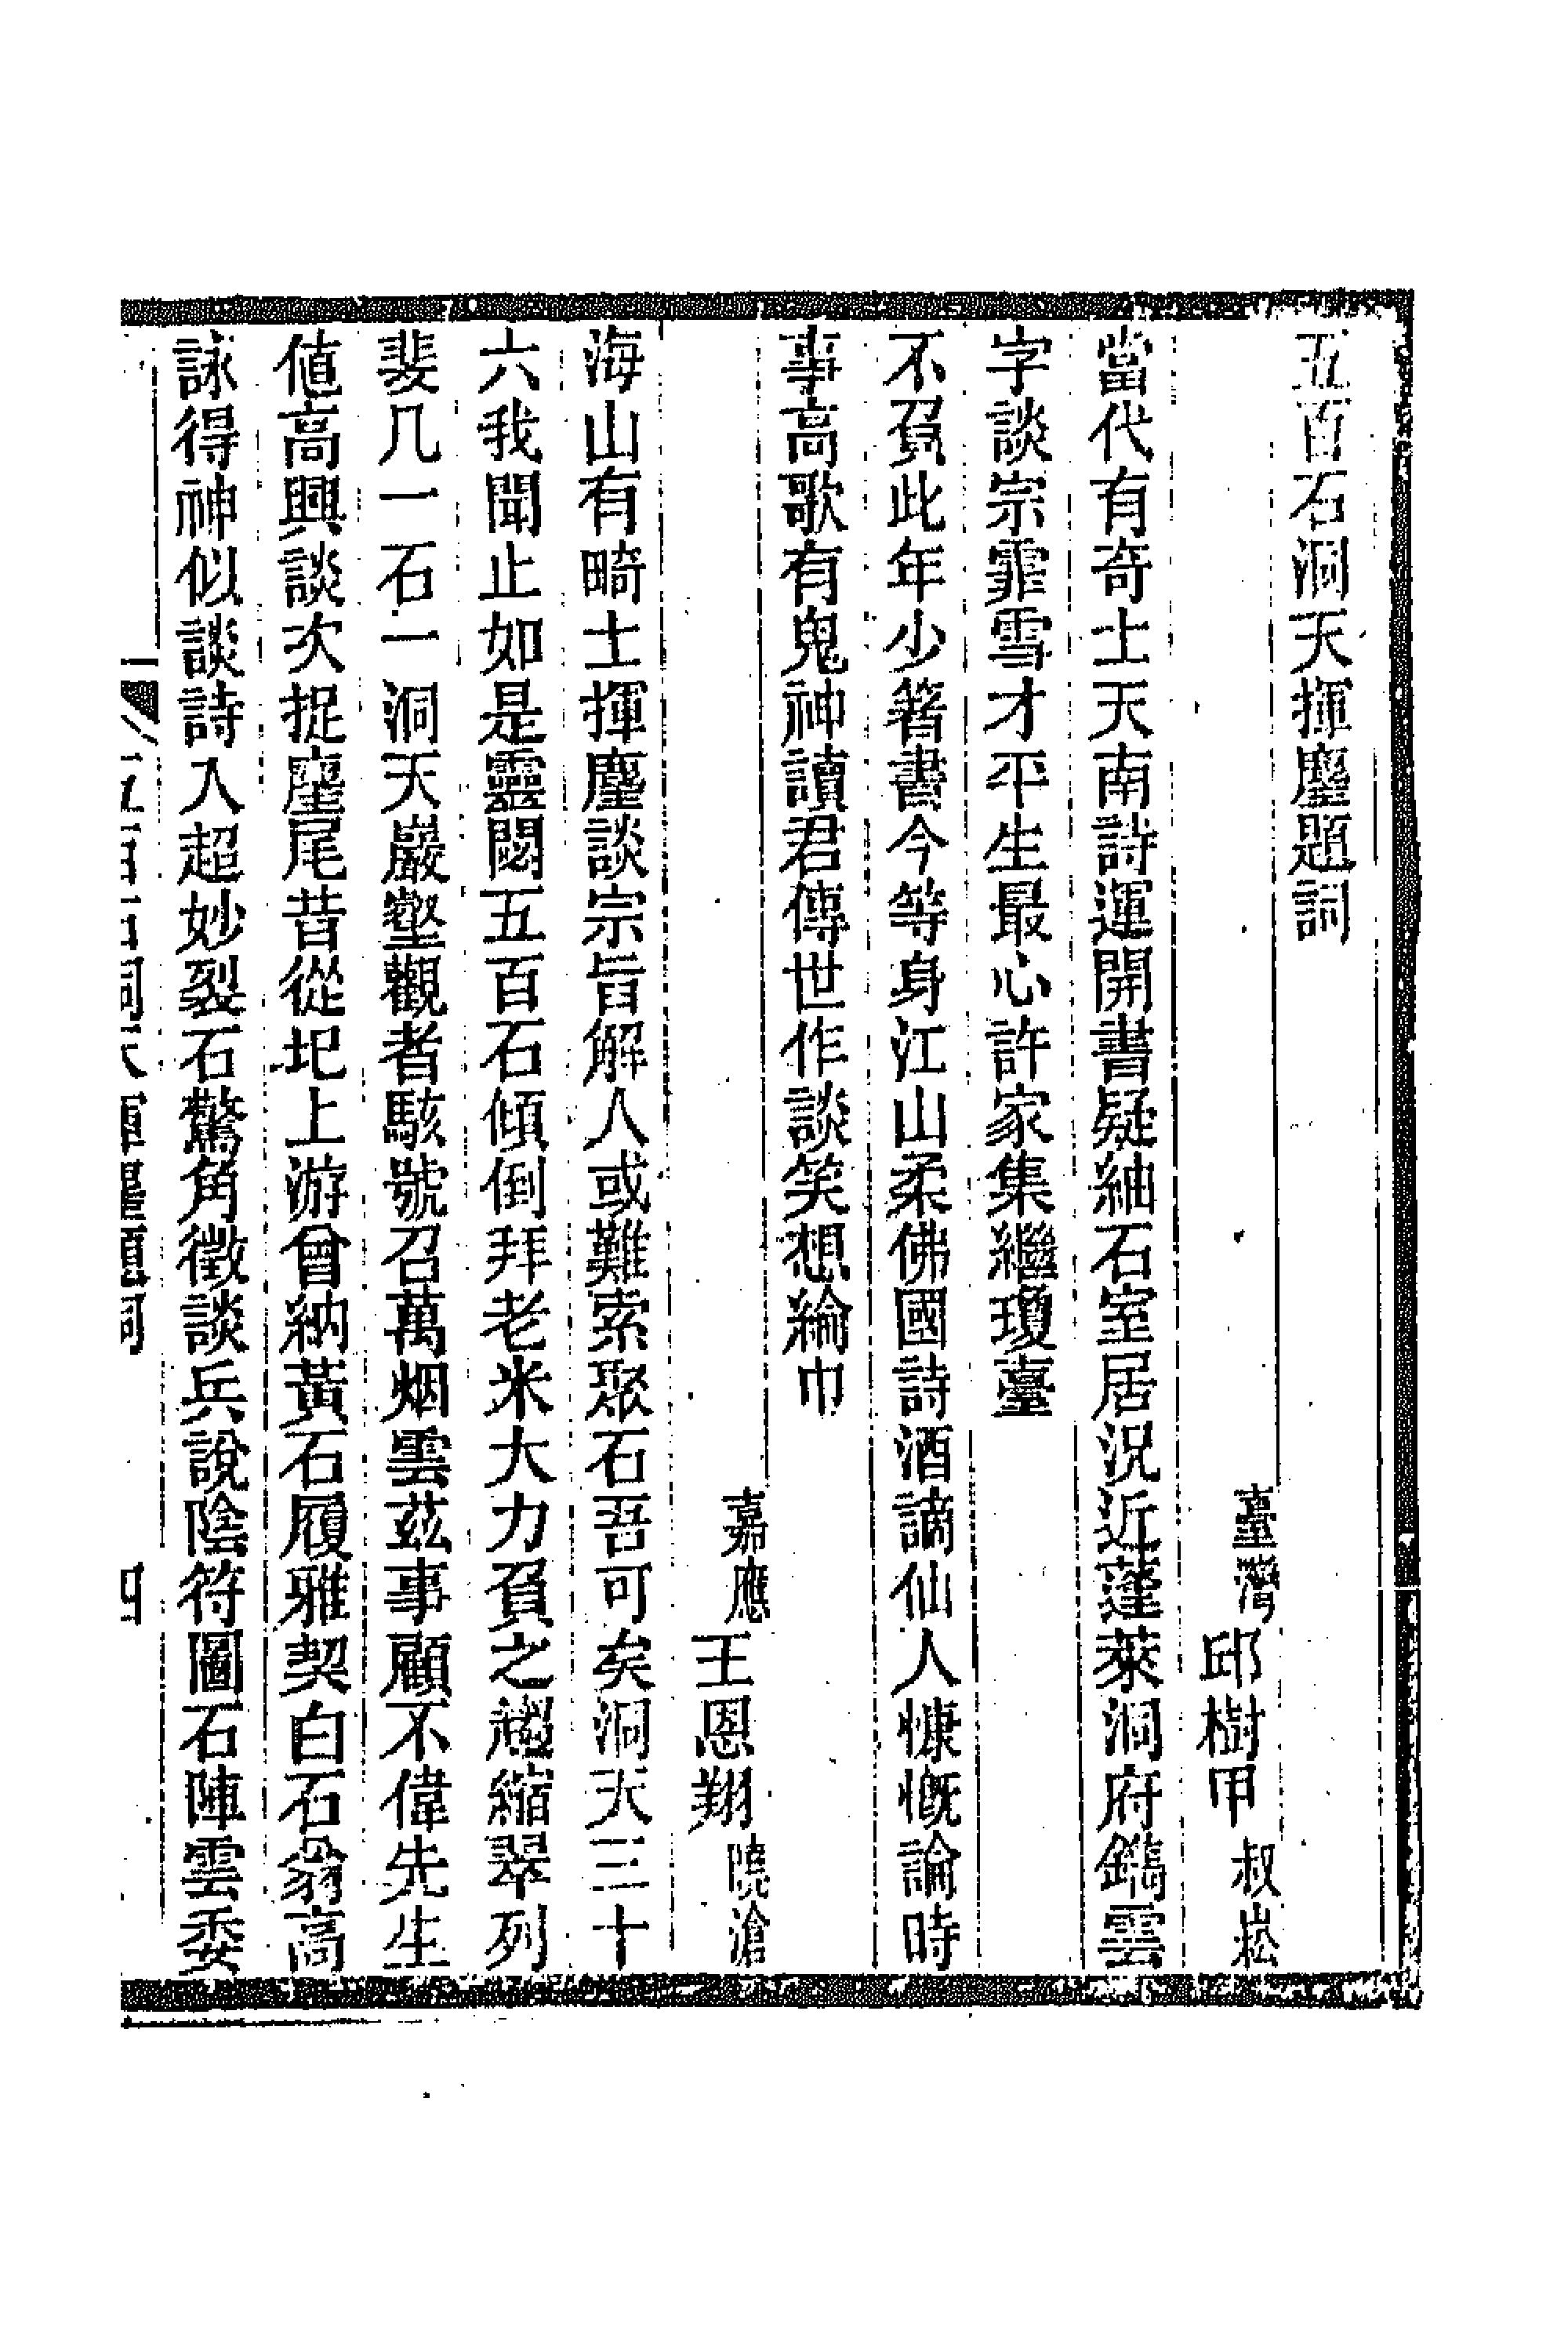 五百石洞天揮麈題詞
臺灣邱樹甲叔崧
當代有奇士天南詩運開書疑紬石室居況近蓬萊洞府鐫雲
字談宗霏雪才平生最心許家集繼瓊臺
不負此年少著書今等身江山柔佛國詩酒謫仙人慷慨論時
事高歌有鬼神讀君傳世作談笑想綸巾
嘉應王恩翔曉滄
海山有畸士揮麈談宗旨解人或難索聚石吾可矣洞天三十
六我聞止如是靈閟五百石傾倒拜老米大力負之趨縮翠列
棐几一石一洞天巖壑觀者駭號召萬烟雲茲事顧不偉先生
値高興談次捉麈尾昔從圯上游曾納黃石履雅契白石翁高
詠得神似談詩入超妙裂石驚角徵談兵說陰符圖石陣雲委
五百石洞天揮麈題詞 四